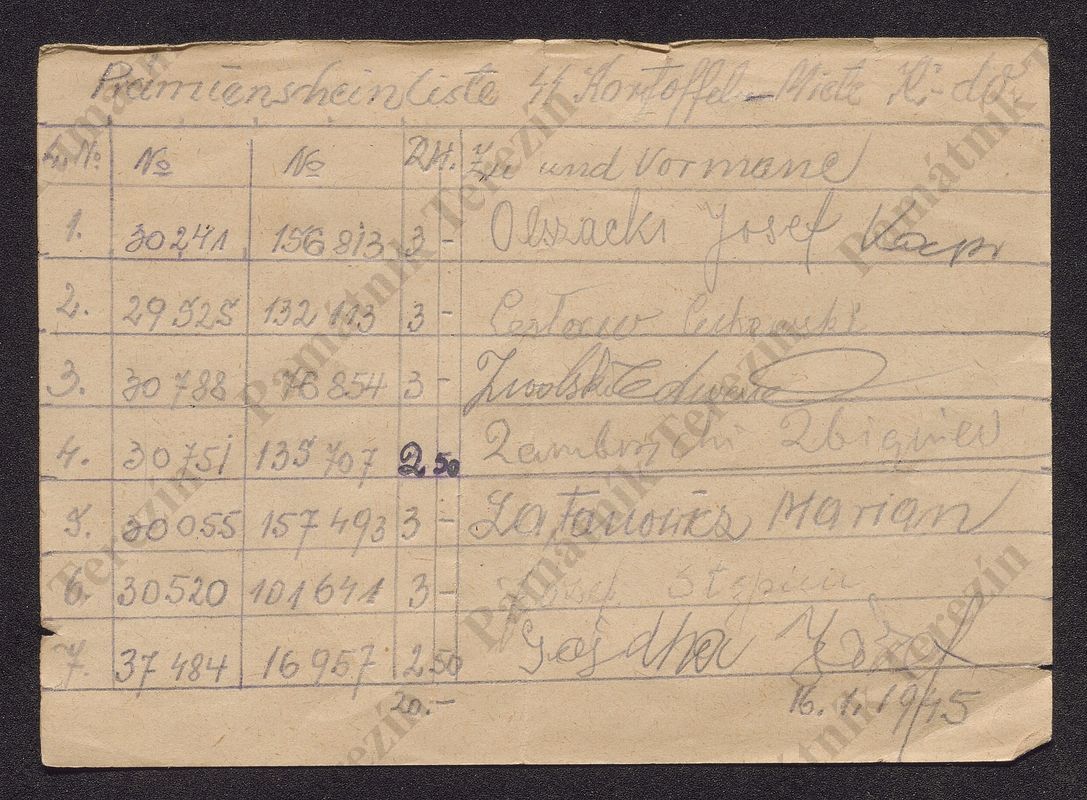 Prämienscheinliste SS Kartoffel-Miete K.-do
L. № № № RM. Zu und Vormane
1. 30241 156813 3 - Olszacki Josef Kapo
2. 29525 132113 3 -
3. 30788 76854 3 - Zwolski Edward
4. 30751 135707 2 50 Zbigniew
5. 30055 157493 3 - Marian
6. 30520 101641 3 - Josef Stępien
7. 37484 16957 2.50 Józef
20.- 16.1.1945
Památník Terezín